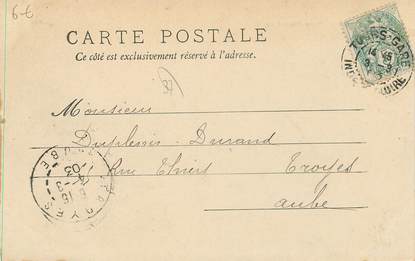 6-€
CARTE POSTALE
Ce côté est exclusivement réservé à l'adresse.
TOURS-GARE
INDRE-ET-LOIRE
Monsieur
Duplessis-Durand
1 Rue Thiers Troyes
Aube
TROYES
AUBE
6 15
03